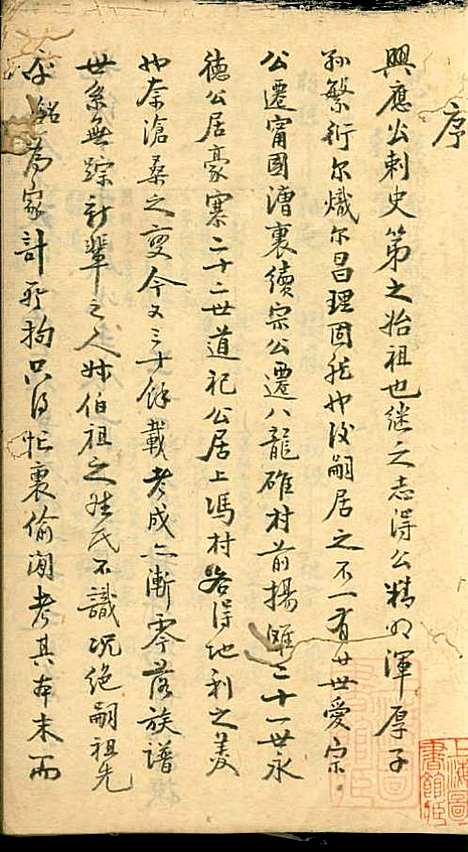 序
興應公刺史第之始祖也继之志得公精㕥渾厚子
孙繁衍尔熾尔昌理固然也後嗣居之不一有廿世愛宗
公遷甯國漕裏續宗公遷八龍碓村前揚灘二十一世永
德公居豪寨二十二世道祀公居上馮村各得地利之美
也奈滄桑之変今又三十餘載老成亦漸零落族譜
世系無踪新輩之人姊伯祖之姓氏不識况绝嗣祖先
乎 為家計形拘只得忙裏偷闲考其本末而
上海圖書館藏